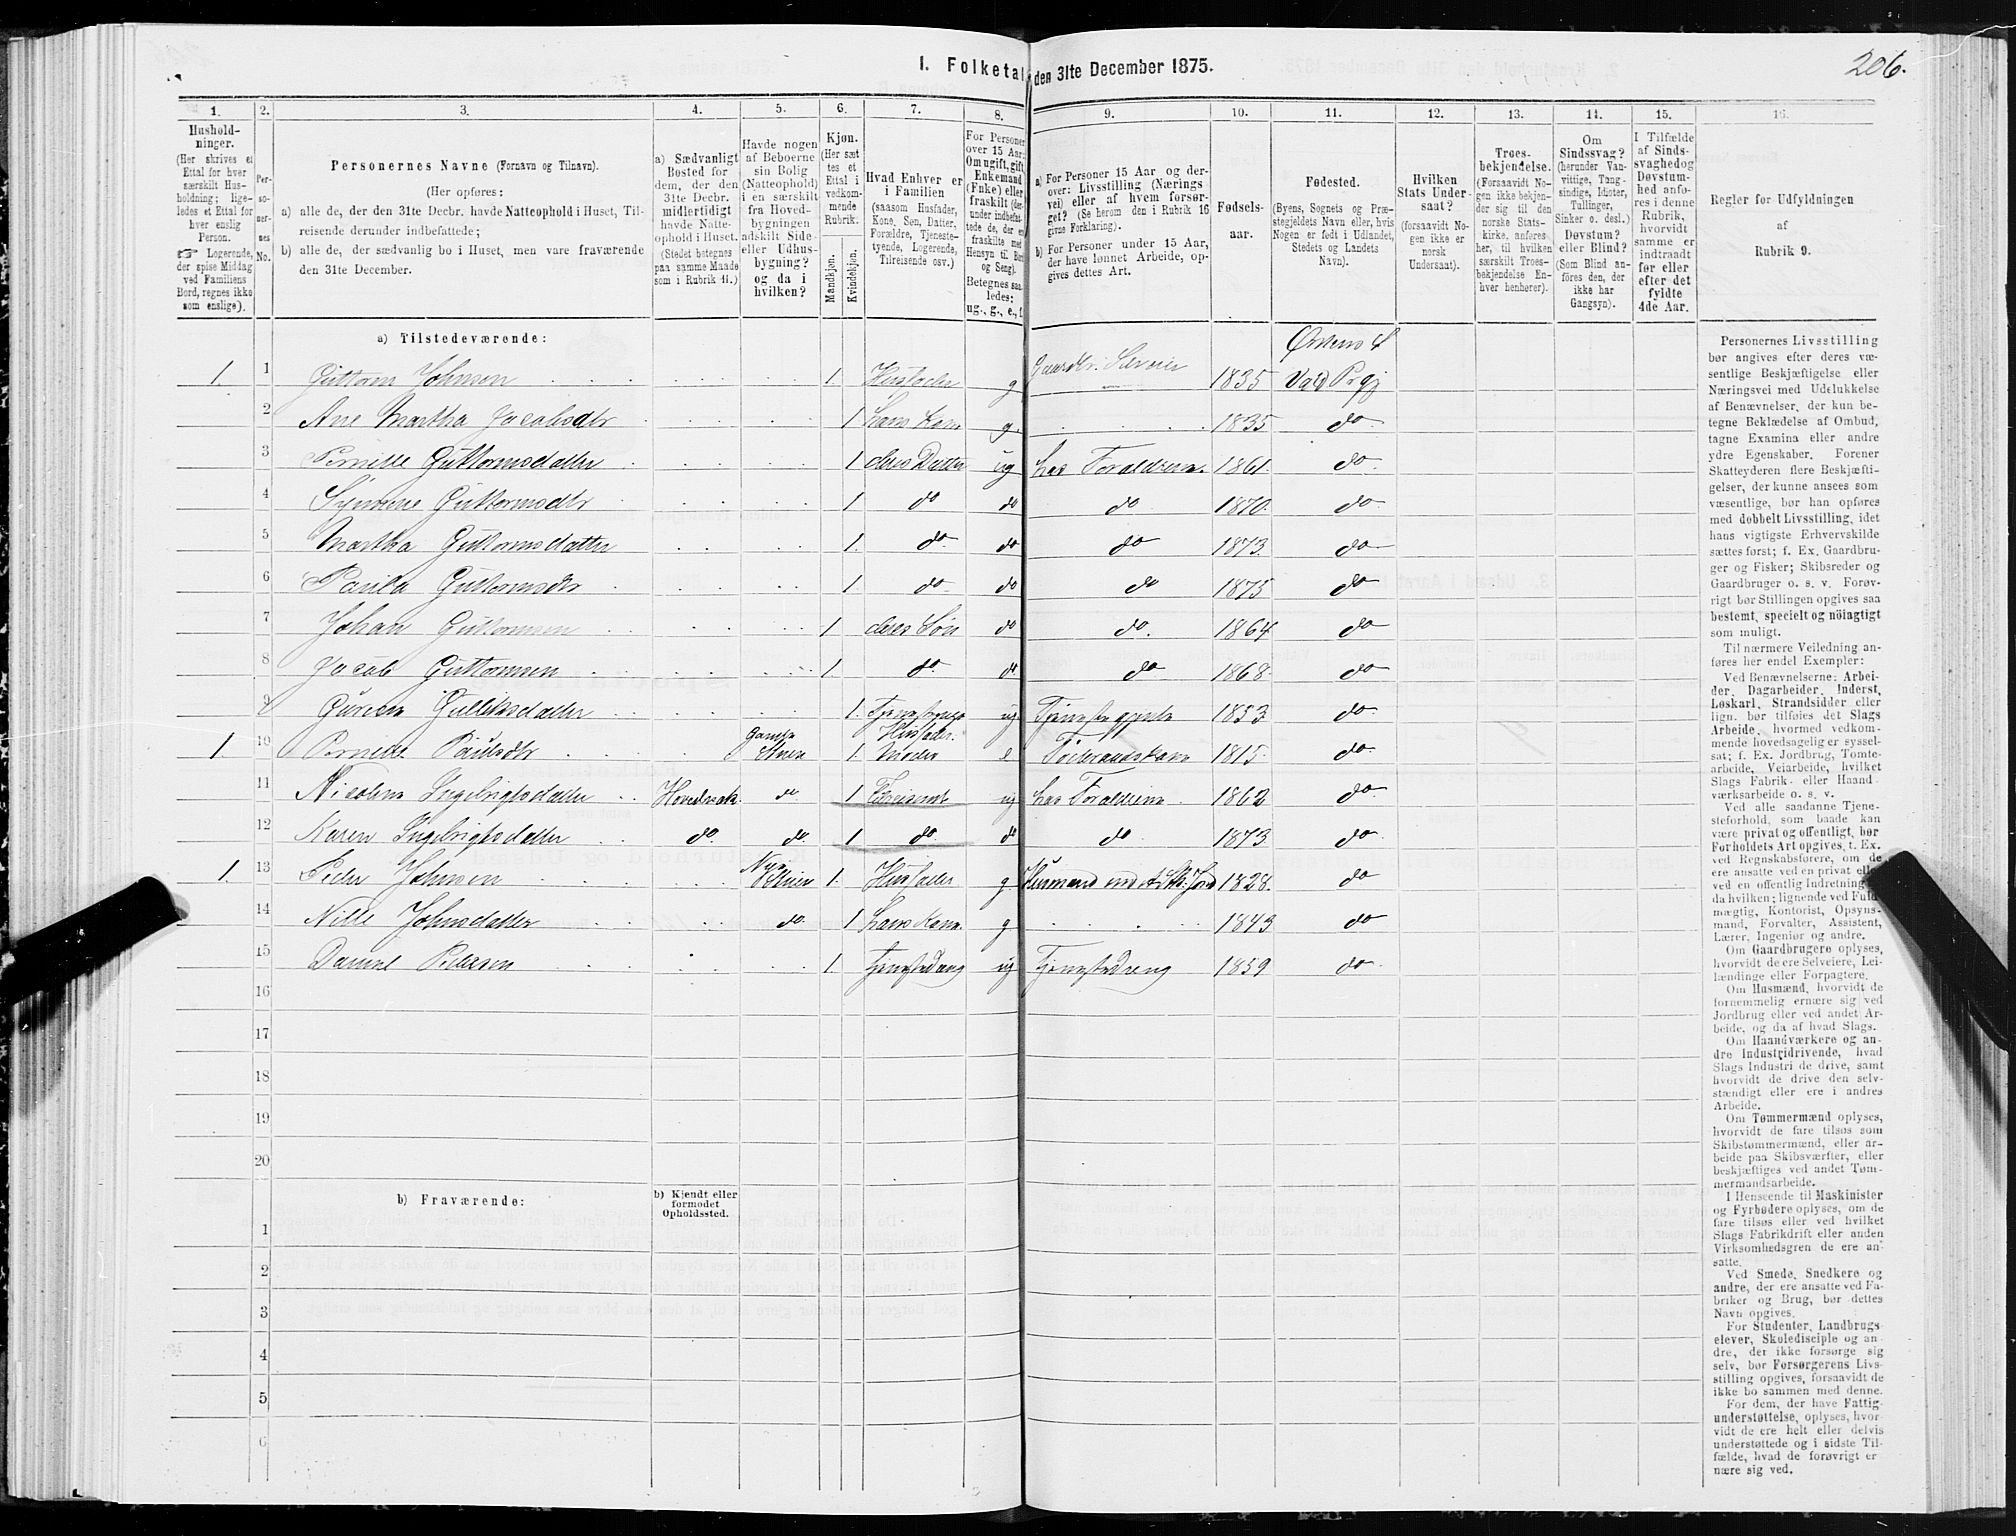 206.
I. Folketal den 31te December 1875.
1. 2. 3. 4. 5. 6. 7. 8. 9. 10. 11. 12. 13. 14. 15. 16.
Hushold-
ninger.
(Her skrives et
Ettal for hver
særskilt Hus-
holdning; lige-
ledes et Ettal for
hver enslig
Person.
☞ Logerende,
der spise Middag
ved Familiens
Bord, regnes ikke
som enslige).
Per-
so-
ner-
nes
No.
Personernes Navne (Fornavn og Tilnavn).
(Her opføres:
a) alle de, der den 31te Decbr. havde Natteophold i Huset, Til-
reisende derunder indbefattede;
b) alle de, der sædvanlig bo i Huset, men vare fraværende
den 31te December.
a) Sædvanligt
Bosted for
dem, der den
31te Decbr.
midlertidigt
havde Natte-
ophold i Huset.
(Stedet betegnes
paa samme Maade
som i Rubrik 11.)
Havde nogen
af Beboerne
sin Bolig
(Natteophold)
i en særskilt
fra Hoved-
bygningen
adskilt Side-
eller Udhus-
bygning?
og da i
hvilken?
Kjøn.
(Her sæt
tes et
Ettal i
vedkom-
mende
Rubrik.
Mandkjøn.
Kvindekjøn.
Hvad Enhver er
i Familien
(saasom Husfader,
Kone, Søn, Datter,
Forældre, Tjeneste-
tyende, Logerende,
Tilreisende osv.)
For Personer
over 15 Aar:
Om ugift, gift,
Enkemand
(Enke) eller
fraskilt (der-
under indbefat-
tede de, der ere
fraskilte med
Hensyn til Bord
og Seng).
Betegnes saa-
ledes:
ug., g., e., f.
a) For Personer 15 Aar og der-
over: Livsstilling (Nærings
vei) eller af hvem forsør-
get? (Se herom den i Rubrik 16
givne Forklaring).
b) For Personer under 15 Aar,
der have lønnet Arbeide, op-
gives dettes Art.
Fødsels-
aar.
Fødested.
(Byens, Sognets og Præ-
stegjeldets Navn eller, hvis
Nogen er født i Udlandet,
Stedets og Landets
Navn).
Hvilken
Stats Under-
saat?
(forsaavidt No-
gen ikke er
norsk
Undersaat).
Troes-
bekjendelse.
(Forsaavidt No-
gen ikke bekjen-
der sig til den
norske Stats-
kirke, anføres
her, til hvilken
særskilt Troes-
bekjendelse En-
hver henhører).
Om
Sindssvag?
(herunder Van-
vittige, Tung-
sindige, Idioter,
Tullinger,
Sinker o. desl.)
Døvstum?
eller Blind?
(Som Blind an-
føres den, der
ikke har
Gangsyn).
I Tilfælde
af Sinds-
svaghed og
Døvstum-
hed anfø-
res i denne
Rubrik,
hvorvidt
samme er
indtraadt
før eller
efter det
fyldte
4de Aar.
Regler for Udfyldningen
af
Rubrik 9.
a) Tilstedeværende:
1 1 Guttorm Johnsen 1. Husfader g Gaardbr. Selveier 1835 Vald Prgj
2 Ane Martha Jacobsdtr 1 hans Kone g. 1835 do
3 Pernille Guttormsdatter 1 deres Datter ug hos Forældrene. 1861 do
4 Guttormsdtr 1 do do do 1870 do
5 Martha Guttormsdatter 1. do do do 1873 do
6 Guttormsdtr 1. do do do 1875 do
7 Johan Guttormsen 1 deres Søn do do. 1864 do
8 Jacob Guttormsen 1. do. do do 1868 do
9 1. ug Tjenestepige 1853 do.
1 10 Pernille Paulsdtr Gamle Stuen 1. Husfader. Moder e Føderaadskone 1815 do
11 Ingebrigtsdatter do 1 ug hos Forældrene 1862 do.
12 Karen Ingebrigtsdatter do. do. 1 do do do 1873 do
1. 13 Peder Johnsen Nye Stuen 1. Husfader g Husmand med Jord 1828 do
14 Nille Johnsdatter do. 1 hans Kone. g 1843 do
15 Daniel Pedersen 1. Tjenestedreng ug Tjenestedreng 1859 do
16
17
18
19
20
b) Fraværende:
b) Kjendt eller
formodet
Opholdssted.
1
2
3
4
5
6
Personernes Livsstilling
bør angives efter deres væ-
sentlige Beskjæftigelse eller
Næringsvei med Udelukkelse
af Benævnelser, der kun be-
tegne Beklædelse af Ombud,
tagne Examina eller andre
ydre Egenskaber. Forener
Skatteyderen flere Beskjæfti-
gelser, der kunne ansees som
væsentlige, bør han opføres
med dobbelt Livsstilling, idet
hans vigtigste Erhvervskilde
sættes først; f. Ex. Gaardbru-
ger og Fisker; Skibsreder og
Gaardbruger o. s. v. Forøv-
rigt bør Stillingen opgives saa
bestemt, specielt og nöiagtigt
som muligt.
Til nærmere Veiledning an-
føres her endel Exempler:
Ved Benævnelserne: Arbei-
der, Dagarbeider, Inderst,
Løskarl, Strandsidder eller
lign. bør tilføies det Slags
Arbeide, hvormed vedkom-
mende hovedsagelig er syssel-
sat; f. Ex. Jordbrug, Tomte-
arbeide, Veiarbeide, hvilket
Slags Fabrik- eller Haand-
værksarbeide o. s. v.
Ved alle saadanne Tjene-
steforhold, som baade kan
være privat og offentligt, bør
Forholdets Art opgives, t. Ex.
ved Regnskabsførere, om de
ere ansatte ved en privat eller
ved en offentlig Indretning og
da hvilken; lignende ved Fuld-
mægtig, Kontorist, Opsyns-
mand, Forvalter, Assistent,
Lærer, Ingeniør og andre.
Om Gaardbrugere oplyses,
hvorvidt de ere Selveiere, Lei-
lændinge eller Forpagtere.
Om Husmænd, hvorvidt de
fornemmelig ernære sig ved
Jordbrug eller ved andet Ar-
beide, og da af hvad Slags.
Om Haandværkere og an-
dre Industridrivende, hvad
Slags Industri de drive, samt
hvorvidt de drive den selv-
stændigt eller ere i andres
Arbeide.
Om Tømmermænd oplyses,
hvorvidt de fare tilsøs som
Skibstømmermænd, eller ar-
beide paa Skibsværfter, eller
beskjæftiges ved andet Tøm-
mermandsarbeide.
I Henseende til Maskinister
og Fyrbødere oplyses, om de
fare tilsøs eller ved hvilket
Slags Fabrikdrift eller anden
Virksomhedsgren de ere an-
satte.
Ved Smede, Snedkere og
andre, der ere ansatte ved Fa-
briker og Brug, bør dettes
Navn opgives.
For Studenter, Landbrugs-
elever, Skoledisciple og an-
dre, der ikke forsørge sig
selv, bør Forsørgerens Livs-
stilling opgives, forsaavidt de
ikke bo sammen med denne.
For dem, der have Fattig-
understøttelse, oplyses, hvor-
vidt de ere helt eller delvis
understøttede og i sidste Til-
fælde, hvad de forøvrigt er-
nære sig ved.